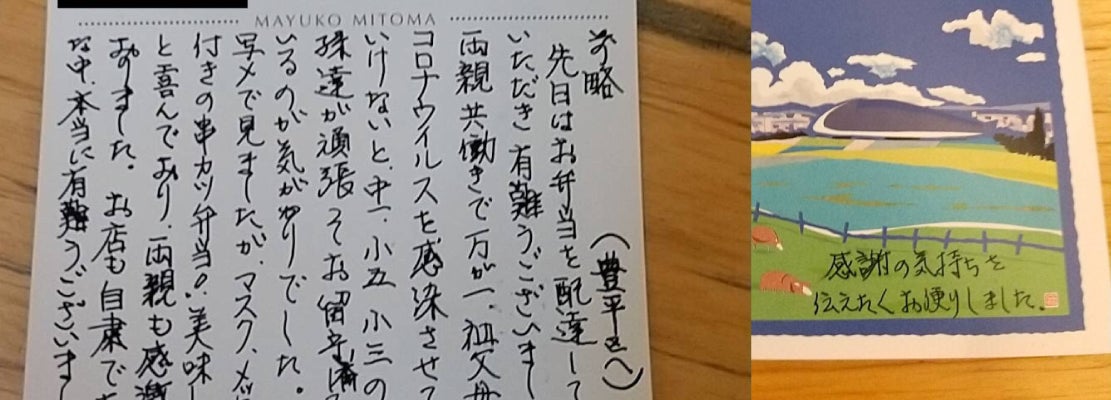 MAYUKO MITOMA
前略 (豊平区へ)
先日はお弁当を配達して
いただき有難うございまし
両親共働きで万が一、祖父母
コロナウイルスを感染させて
いけないと、中一、小五 小三の
孫達が頑張ってお留守
いるのが気がかりでした。
写メで見ましたが、マスク、メッ
付きの串カツ弁当!!美味し
と喜んでおり、両親も感激
おりました。お店も自粛で
な中、本当に有難うございまし
感謝の気持ちを
伝えたくお便りしました。